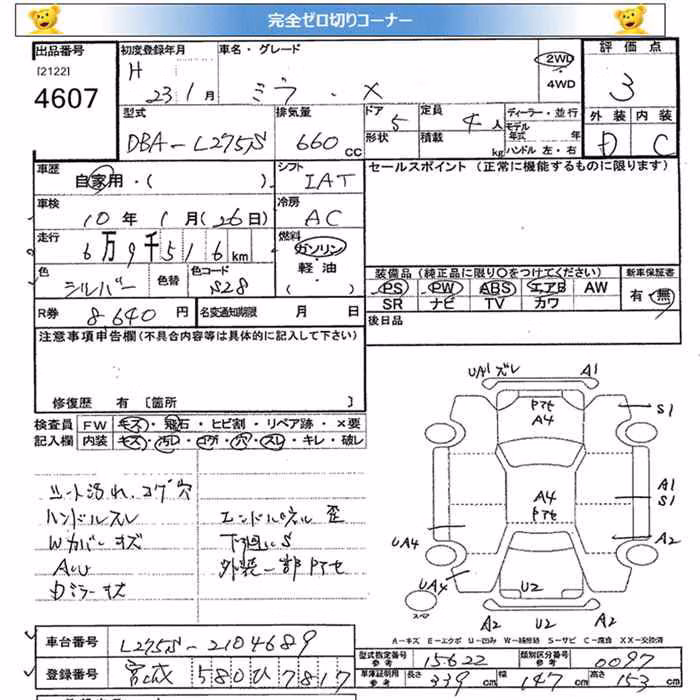 完全ゼロ切りコーナー
出品番号 [2122] 4607
初度登録年月 H 23 1月
車名・グレード ミラ・X
2WD 4WD
評価点 3
外装 内装
D C
型式 DBA-L275S
排気量 660 CC
ドア 5 形状
定員 4人 積載 kg
ディーラー・並行
モデル年式 年
ハンドル 左・右
車歴 自家用・( )
シフト IAT
セールスポイント (正常に機能するものに限ります)
車検 10年 1月(26日)
冷房 AC
走行 6万9千516km
燃料 ガソリン 軽・油 ( )
色 シルバー 色替 色コード S28
装備品 (純正品に限り○をつけてください) 新車保証書
PS PW ABS エアB AW 有・無
SR ナビ TV カワ
R券 8,640円 名変通知期限 月 日
後日品
注意事項申告欄(不具合内容等は具体的に記入して下さい)
修復歴 有 〔箇所 〕
検査員 FW キズ・飛石・ヒビ割・リペア跡・×要
記入欄 内装 キズ・汚レ・コゲ・穴・スレ・キレ・破レ
シート汚れ、コゲ穴
ハンドルスレ
Wカバーキズ
Dミラーキズ
エンドパネル歪
下回りS
外装一部Pアセ
UA1 ズレ A1
Pアセ A4
S1
A1 S1
A4 Pアセ
UA4 A2
UA4 U2
スペア
A2 U2 A2
A-キズ E-エクボ U-凹み W-補修跡 S-サビ C-腐食 XX-交換済
車台番号 L275S-2104689
型式指定番号 参考 15622 類別区分番号 参考 0097
登録番号 宮城 580 ひ 7817
車庫証明用 参考 長さ 339cm 幅 147cm 高さ 153cm